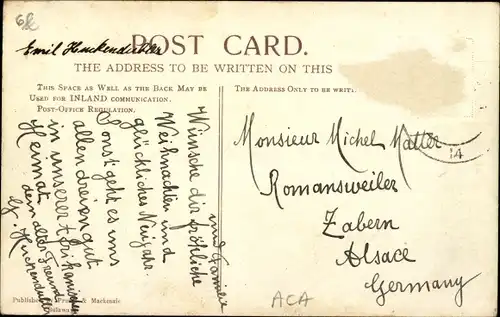 6/2
Emil Huckendubler
POST CARD.
THE ADDRESS TO BE WRITTEN ON THIS
THIS SPACE AS WELL AS THE BACK MAY BE
USED FOR INLAND COMMUNICATION.
POST-OFFICE REGULATION.
THE ADDRESS ONLY TO BE WRITT
Wünsche dir fröhliche
und Familie
Weihnachten und
glückliches Neujahr.
Sonst geht es uns
allen dreien gut
in unserer Afrikanischen
Heimat
dein alter Freund
G. Huckendubler
Monsieur Michel Matter
Romansweiler
Zabern
Alsace
Germany
14
ACA
Mackenzie